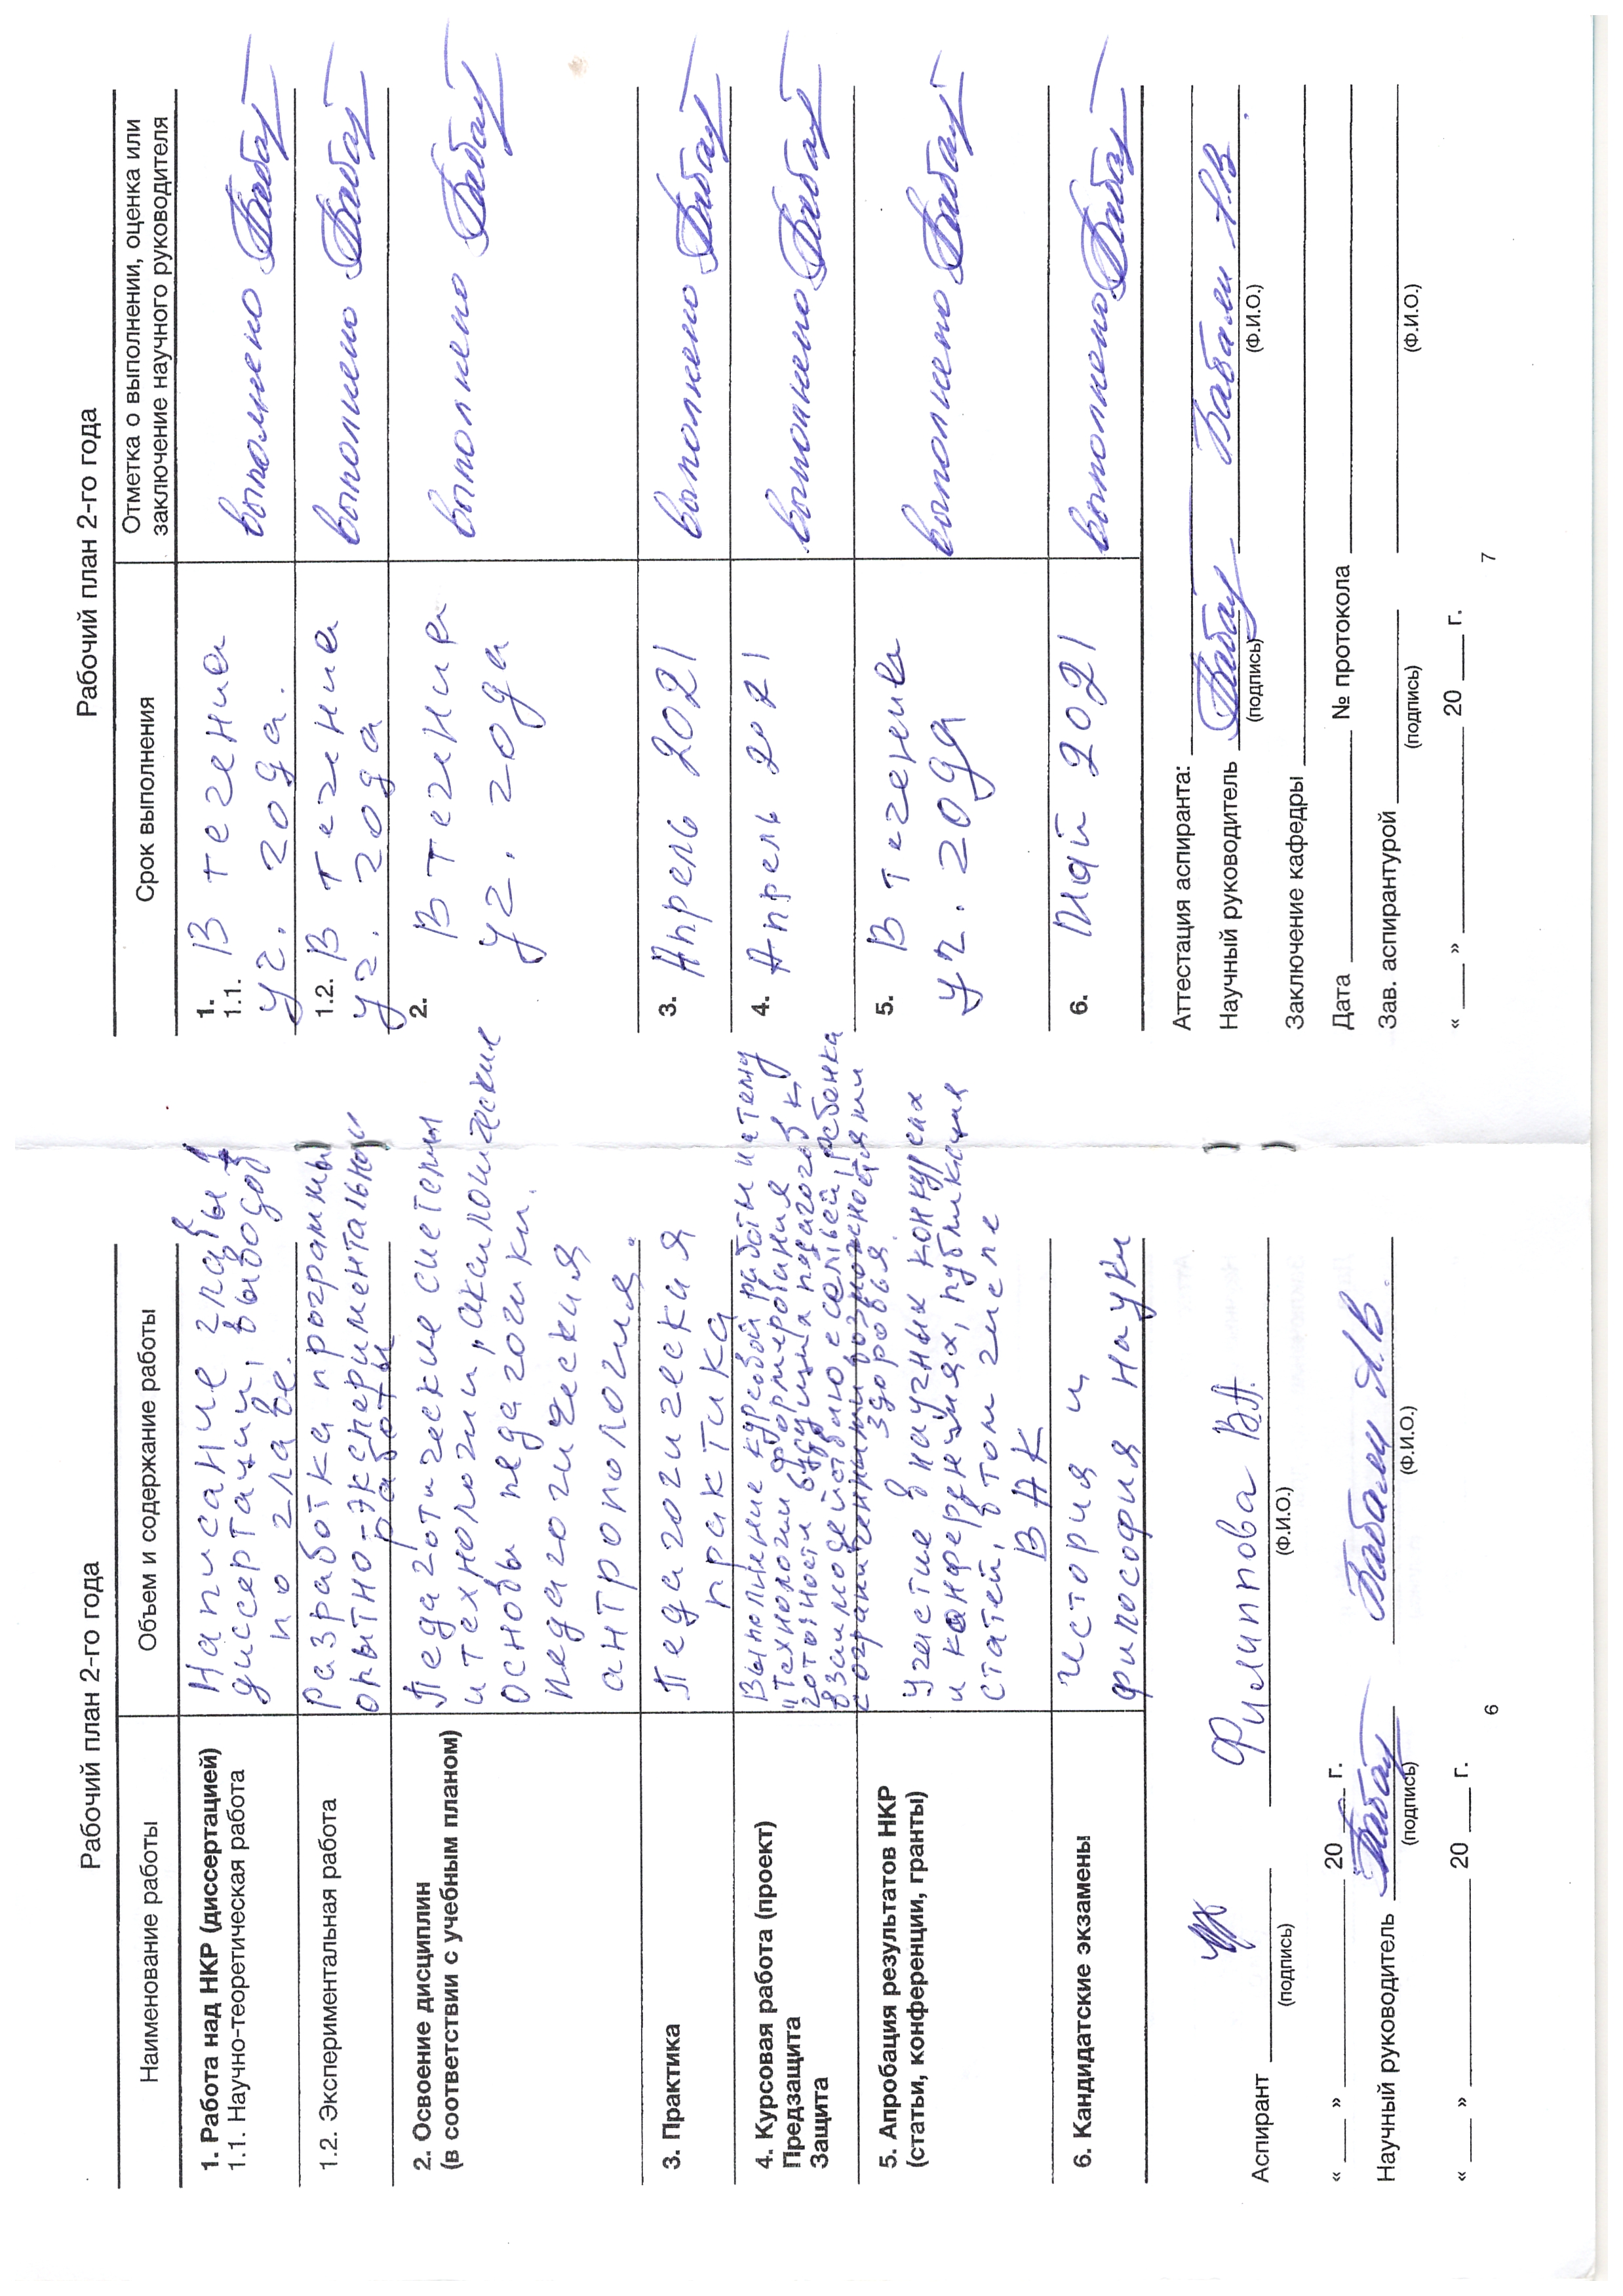 Рабочий план 2-го года
Наименование работы
Объем и содержание работы
1. Работа над НКР (диссертацией)
1.1. Научно-теоретическая работа
Написание главы 1
диссертации, выводов
по главе.
1.2. Экспериментальная работа
разработка программы
опытно-экспериментальной
работы
2. Освоение дисциплин
(в соответствии с учебным планом)
Педагогические системы
и технологии, аксиологические
основы педагогики.
педагогическия
антропология.
3. Практика
Педагогическия
практика
4. Курсовая работа (проект)
Предзащита
Защита
Выполнение курсовой работы на тему
"Технологии формирования
готовности будущих педагогов к
взаимодействию с семьей ребенка
с ограниченными возможностями
здоровья.
5. Апробация результатов НКР
(статьи, конференции, гранты)
Участие в научных конкурсах
и конференциях, публикация
статей, в том числе
ВАК
6. Кандидатские экзамены
История и
философия науки
Аспирант
Филиппова В.А.
(подпись)
(Ф.И.О.)
« » 20 г.
Научный руководитель
Бабали А.В.
(подпись)
(Ф.И.О.)
« » 20 г.
6
Рабочий план 2-го года
Срок выполнения
Отметка о выполнении, оценка или
заключение научного руководителя
1.
1.1. В течение
уч. года.
выполнено
1.2. В течение
уч. года
выполнено
2. В течение
уч. года
выполнено
3. Апрель 2021
выполнено
4. Апрель 2021
выполнено
5. В течение
уч. года
выполнено
6. Май 2021
выполнено
Аттестация аспиранта:
Научный руководитель
(подпись)
(Ф.И.О.)
Заключение кафедры
Дата № протокола
Зав. аспирантурой
(подпись)
(Ф.И.О.)
« » 20 г.
7